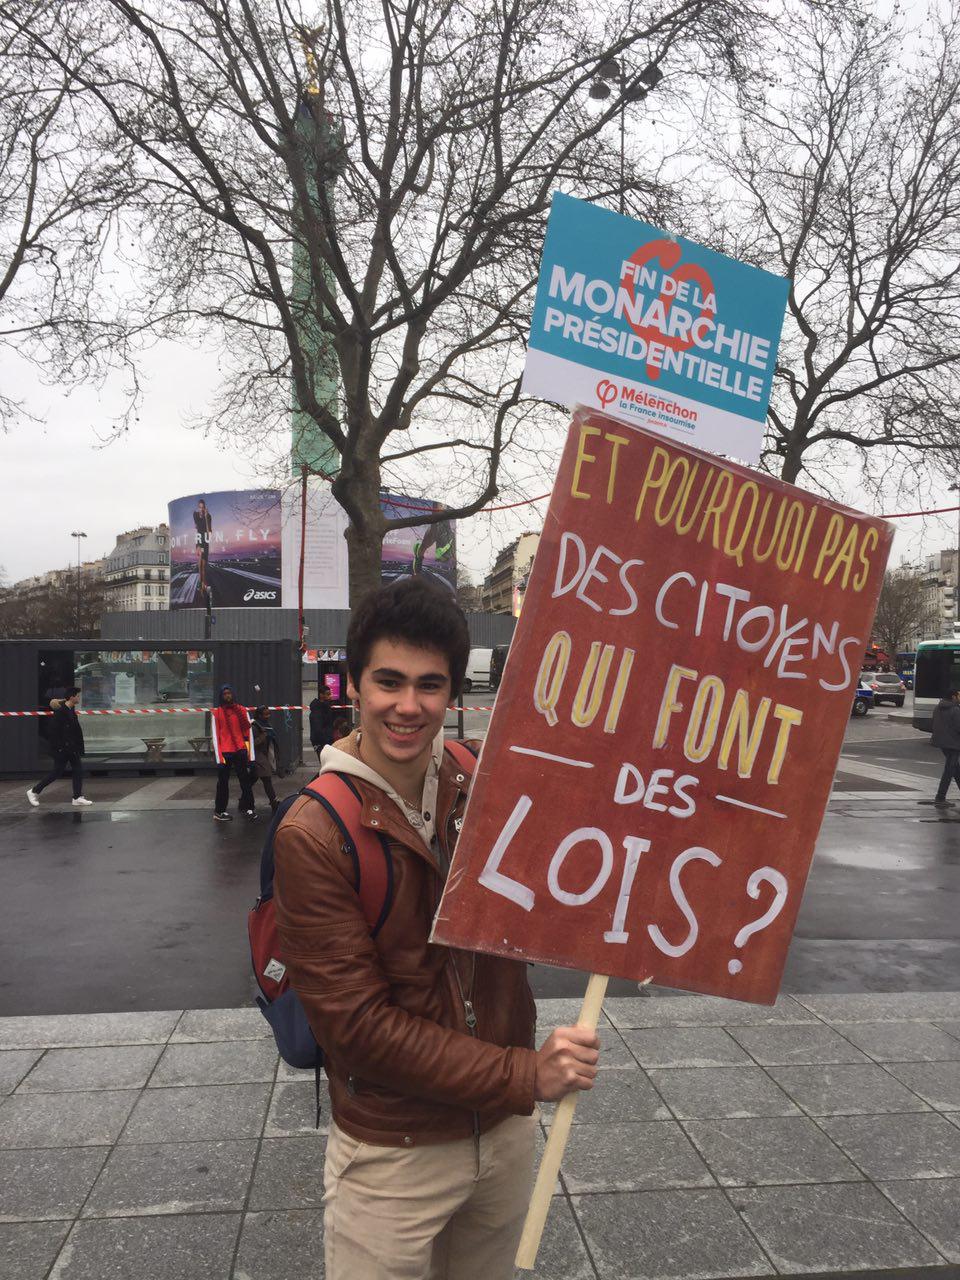 FIN DE LA
MONARCHIE
PRÉSIDENTIELLE
Mélenchon
la France insoumise
ET POURQUOI PAS
DES CITOYENS
QUI FONT
DES
LOIS ?
RUN, FLY
asics